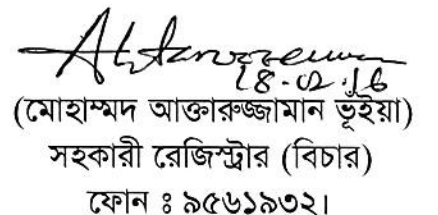 18-02-16
(মোহাম্মদ আক্তারুজ্জামান ভূইয়া)
সহকারী রেজিস্ট্রার (বিচার)
ফোন ঃ ৯৫৬১৯৩২।